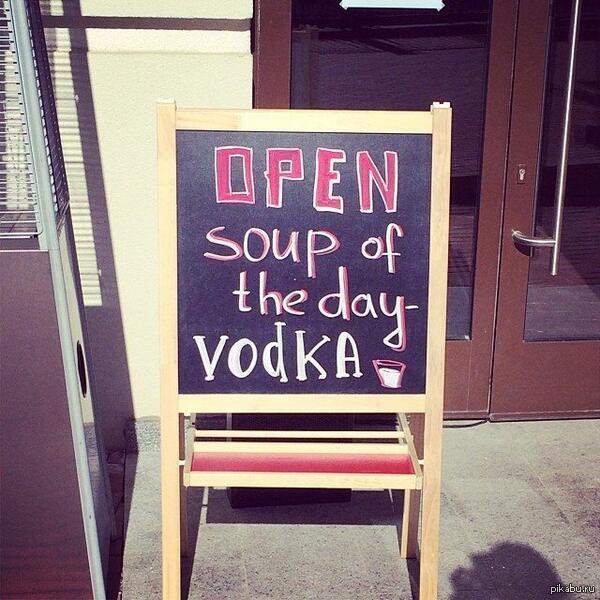 OPEN
soup of
the day-
VODKA
pikabu.ru